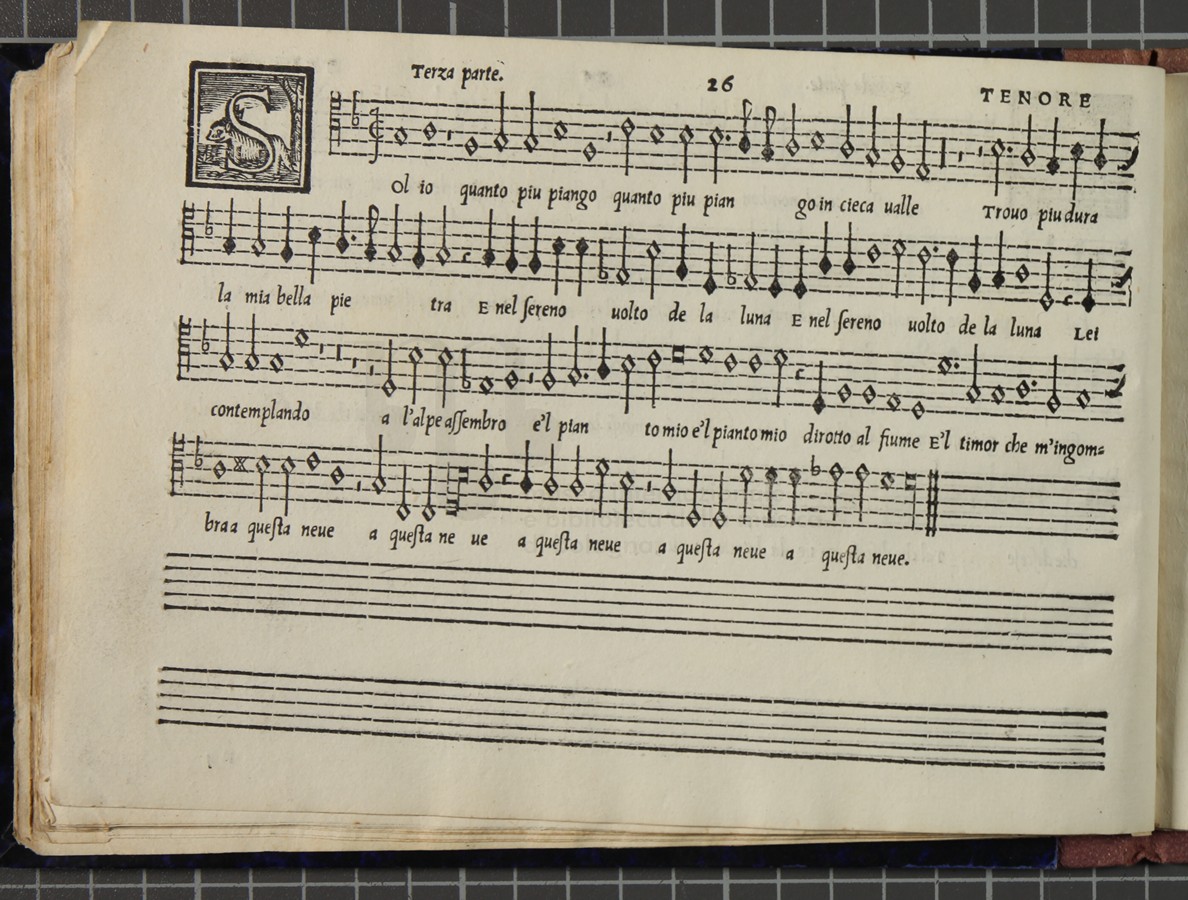 Terza parte. 26 TENORE
S
ol io quanto piu piango quanto piu pian go in cieca ualle Trouo piu dura
la mia bella pie tra E nel ſereno uolto de la luna E nel ſereno uolto de la luna Lei
contemplando a l'alpe aſſembro e'l pian to mio e'l pianto mio dirotto al fiume E'l timor che m'ingom=
bra a queſta neue a queſta ne ue a queſta neue a queſta neue a queſta neue.